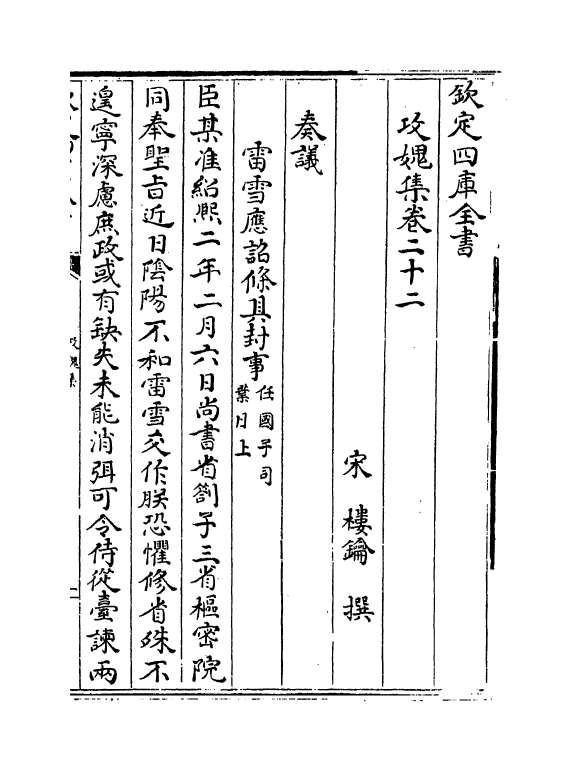 欽定四庫全書
攻媿集卷二十二
宋　樓鑰　撰
奏議
雷雪應詔條具封事任國子司業日上
臣某准紹熙二年二月六日尚書省劄子三省樞密院
同奉聖旨近日陰陽不和雷雪交作朕恐懼修省殊不
遑寧深慮庶政或有缺失未能消弭可令侍從臺諫兩
攻媿集